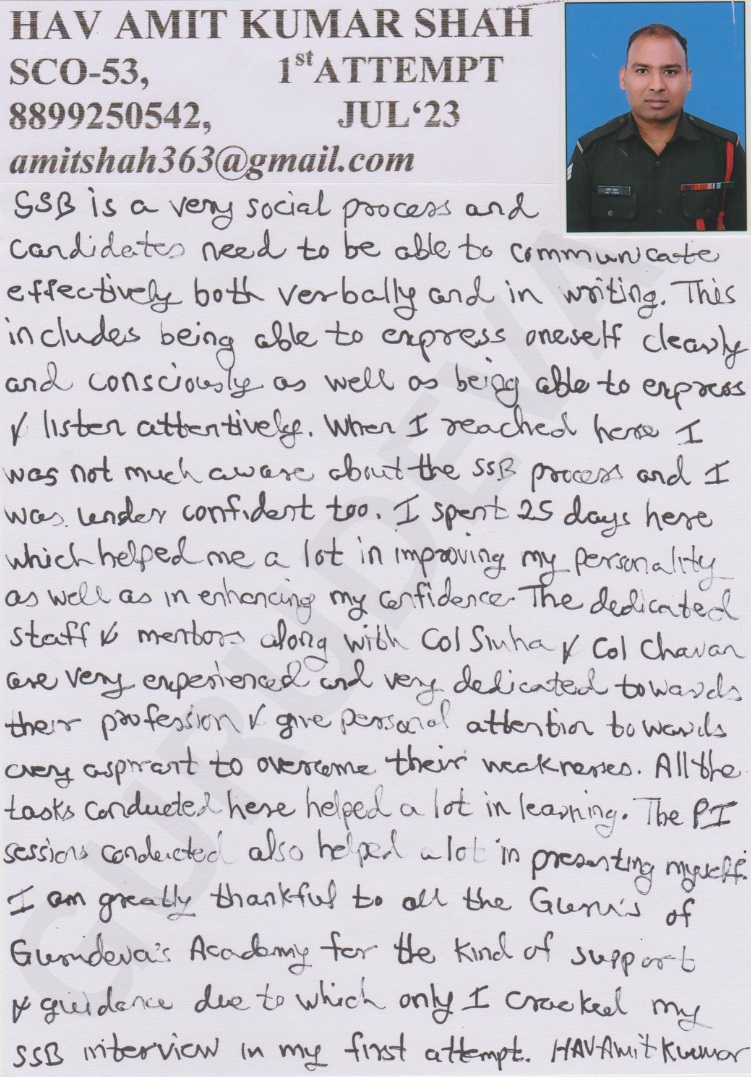 HAV AMIT KUMAR SHAH
SCO-53, 1st ATTEMPT
8899250542, JUL‘23
amitshah363@gmail.com
SSB is a very social process and
candidates need to be able to communicate
effectively both verbally and in writing. This
includes being able to express oneself clearly
and consciously as well as being able to express
& listen attentively. When I reached here I
was not much aware about the SSB process and I
was under confident too. I spent 25 days here
which helped me a lot in improving my personality
as well as in enhancing my confidence. The dedicated
staff & mentors along with Col Sinha & Col Chavan
are very experienced and very dedicated towards
their profession & give personal attention towards
every aspirant to overcome their weaknesses. All the
tasks conducted here helped a lot in learning. The PI
sessions conducted also helped a lot in presenting myself.
I am greatly thankful to all the Guru's of
Gurudeva's Academy for the kind of support
& guidance due to which only I cracked my
SSB interview in my first attempt. HAV Amit Kumar
GURUDEVA